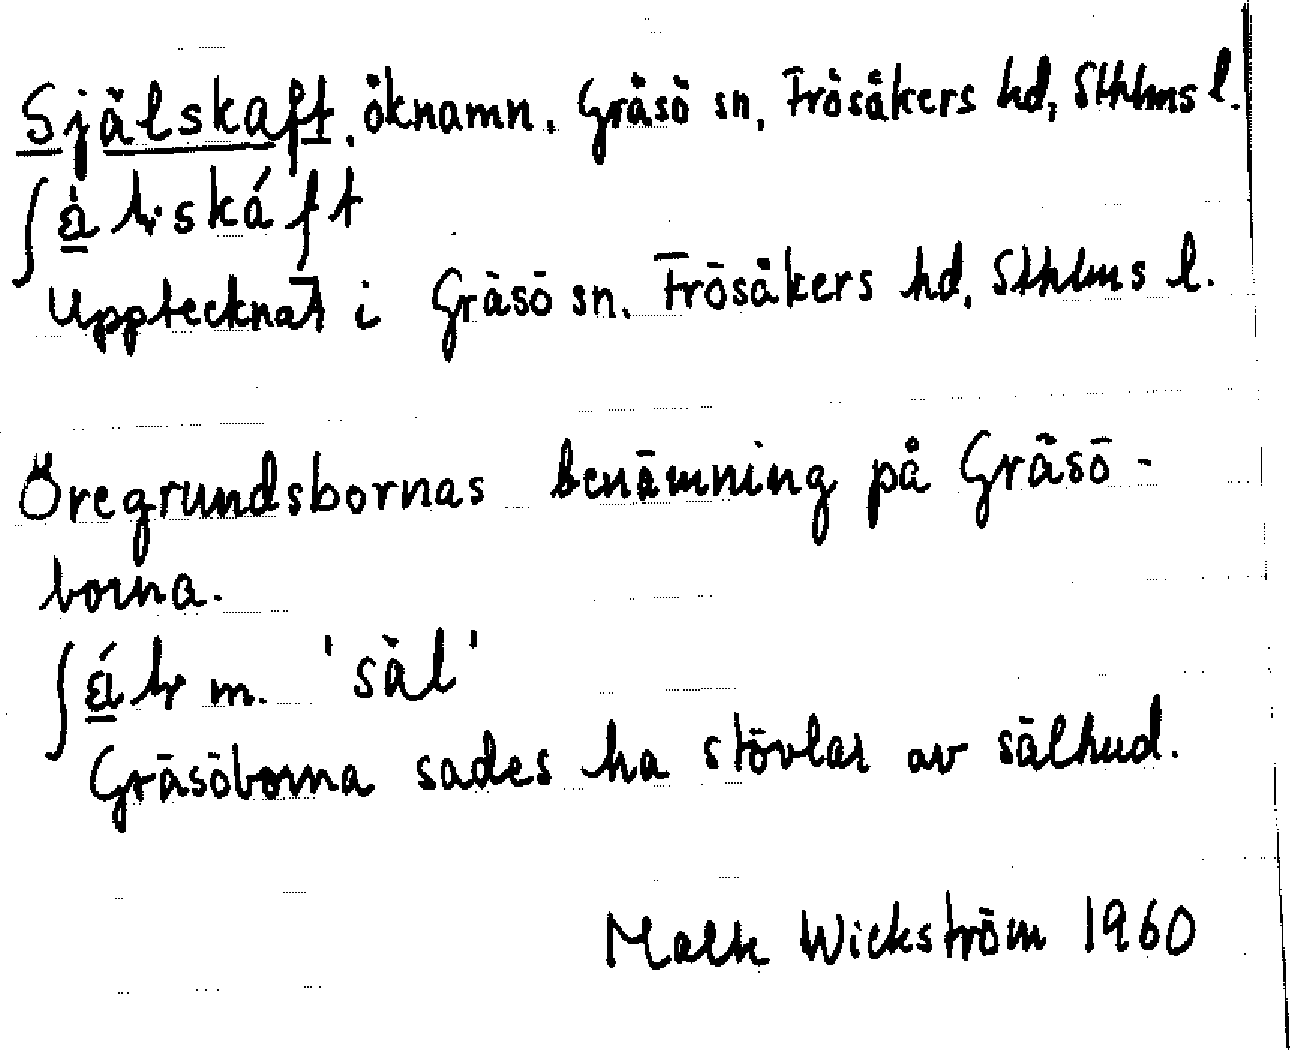 Själskaft, öknamn. Gräsö sn, Frösåkers hd, Sthlms l.
Upptecknat i Gräsö sn. Frösåkers hd. Sthlms l.
Öregrundsbornas benämning på Gräsö-
borna.
m. 'säl'
Gräsöborna sades ha stövlar av sälhud.
Wickström 1960